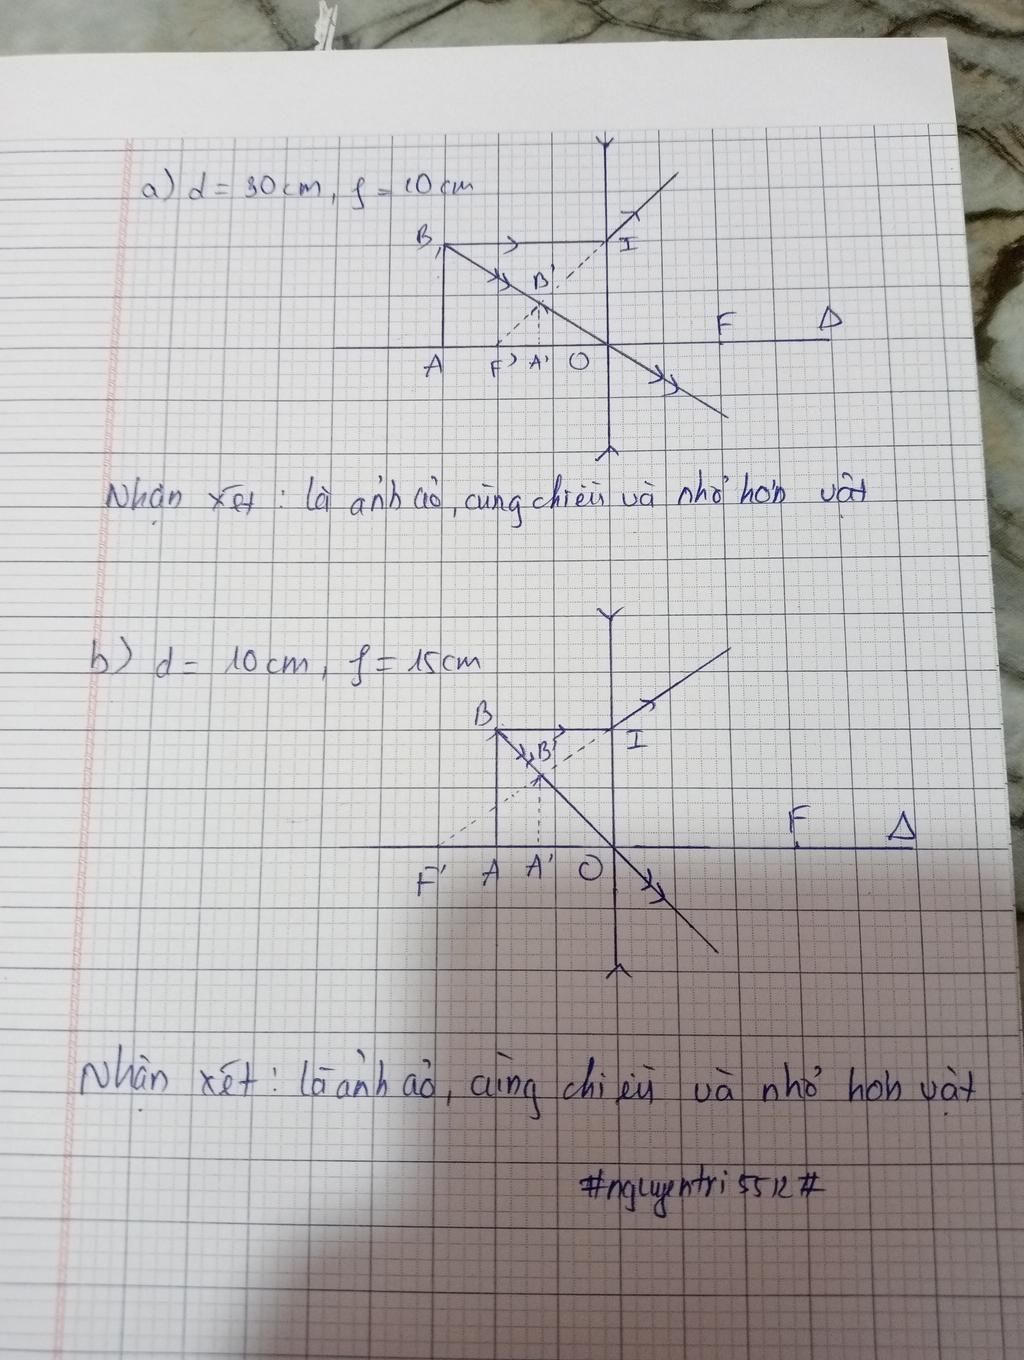 a) d = 30cm, f = 10cm
B
I
B'
F
Δ
A
F'
A'
O
Nhận xét : là ảnh ảo, cùng chiều và nhỏ hơn vật
b) d = 10cm, f = 15cm
B
I
B'
F
Δ
F'
A
A'
O
Nhận xét : là ảnh ảo, cùng chiều và nhỏ hơn vật
#nguyentri5512#